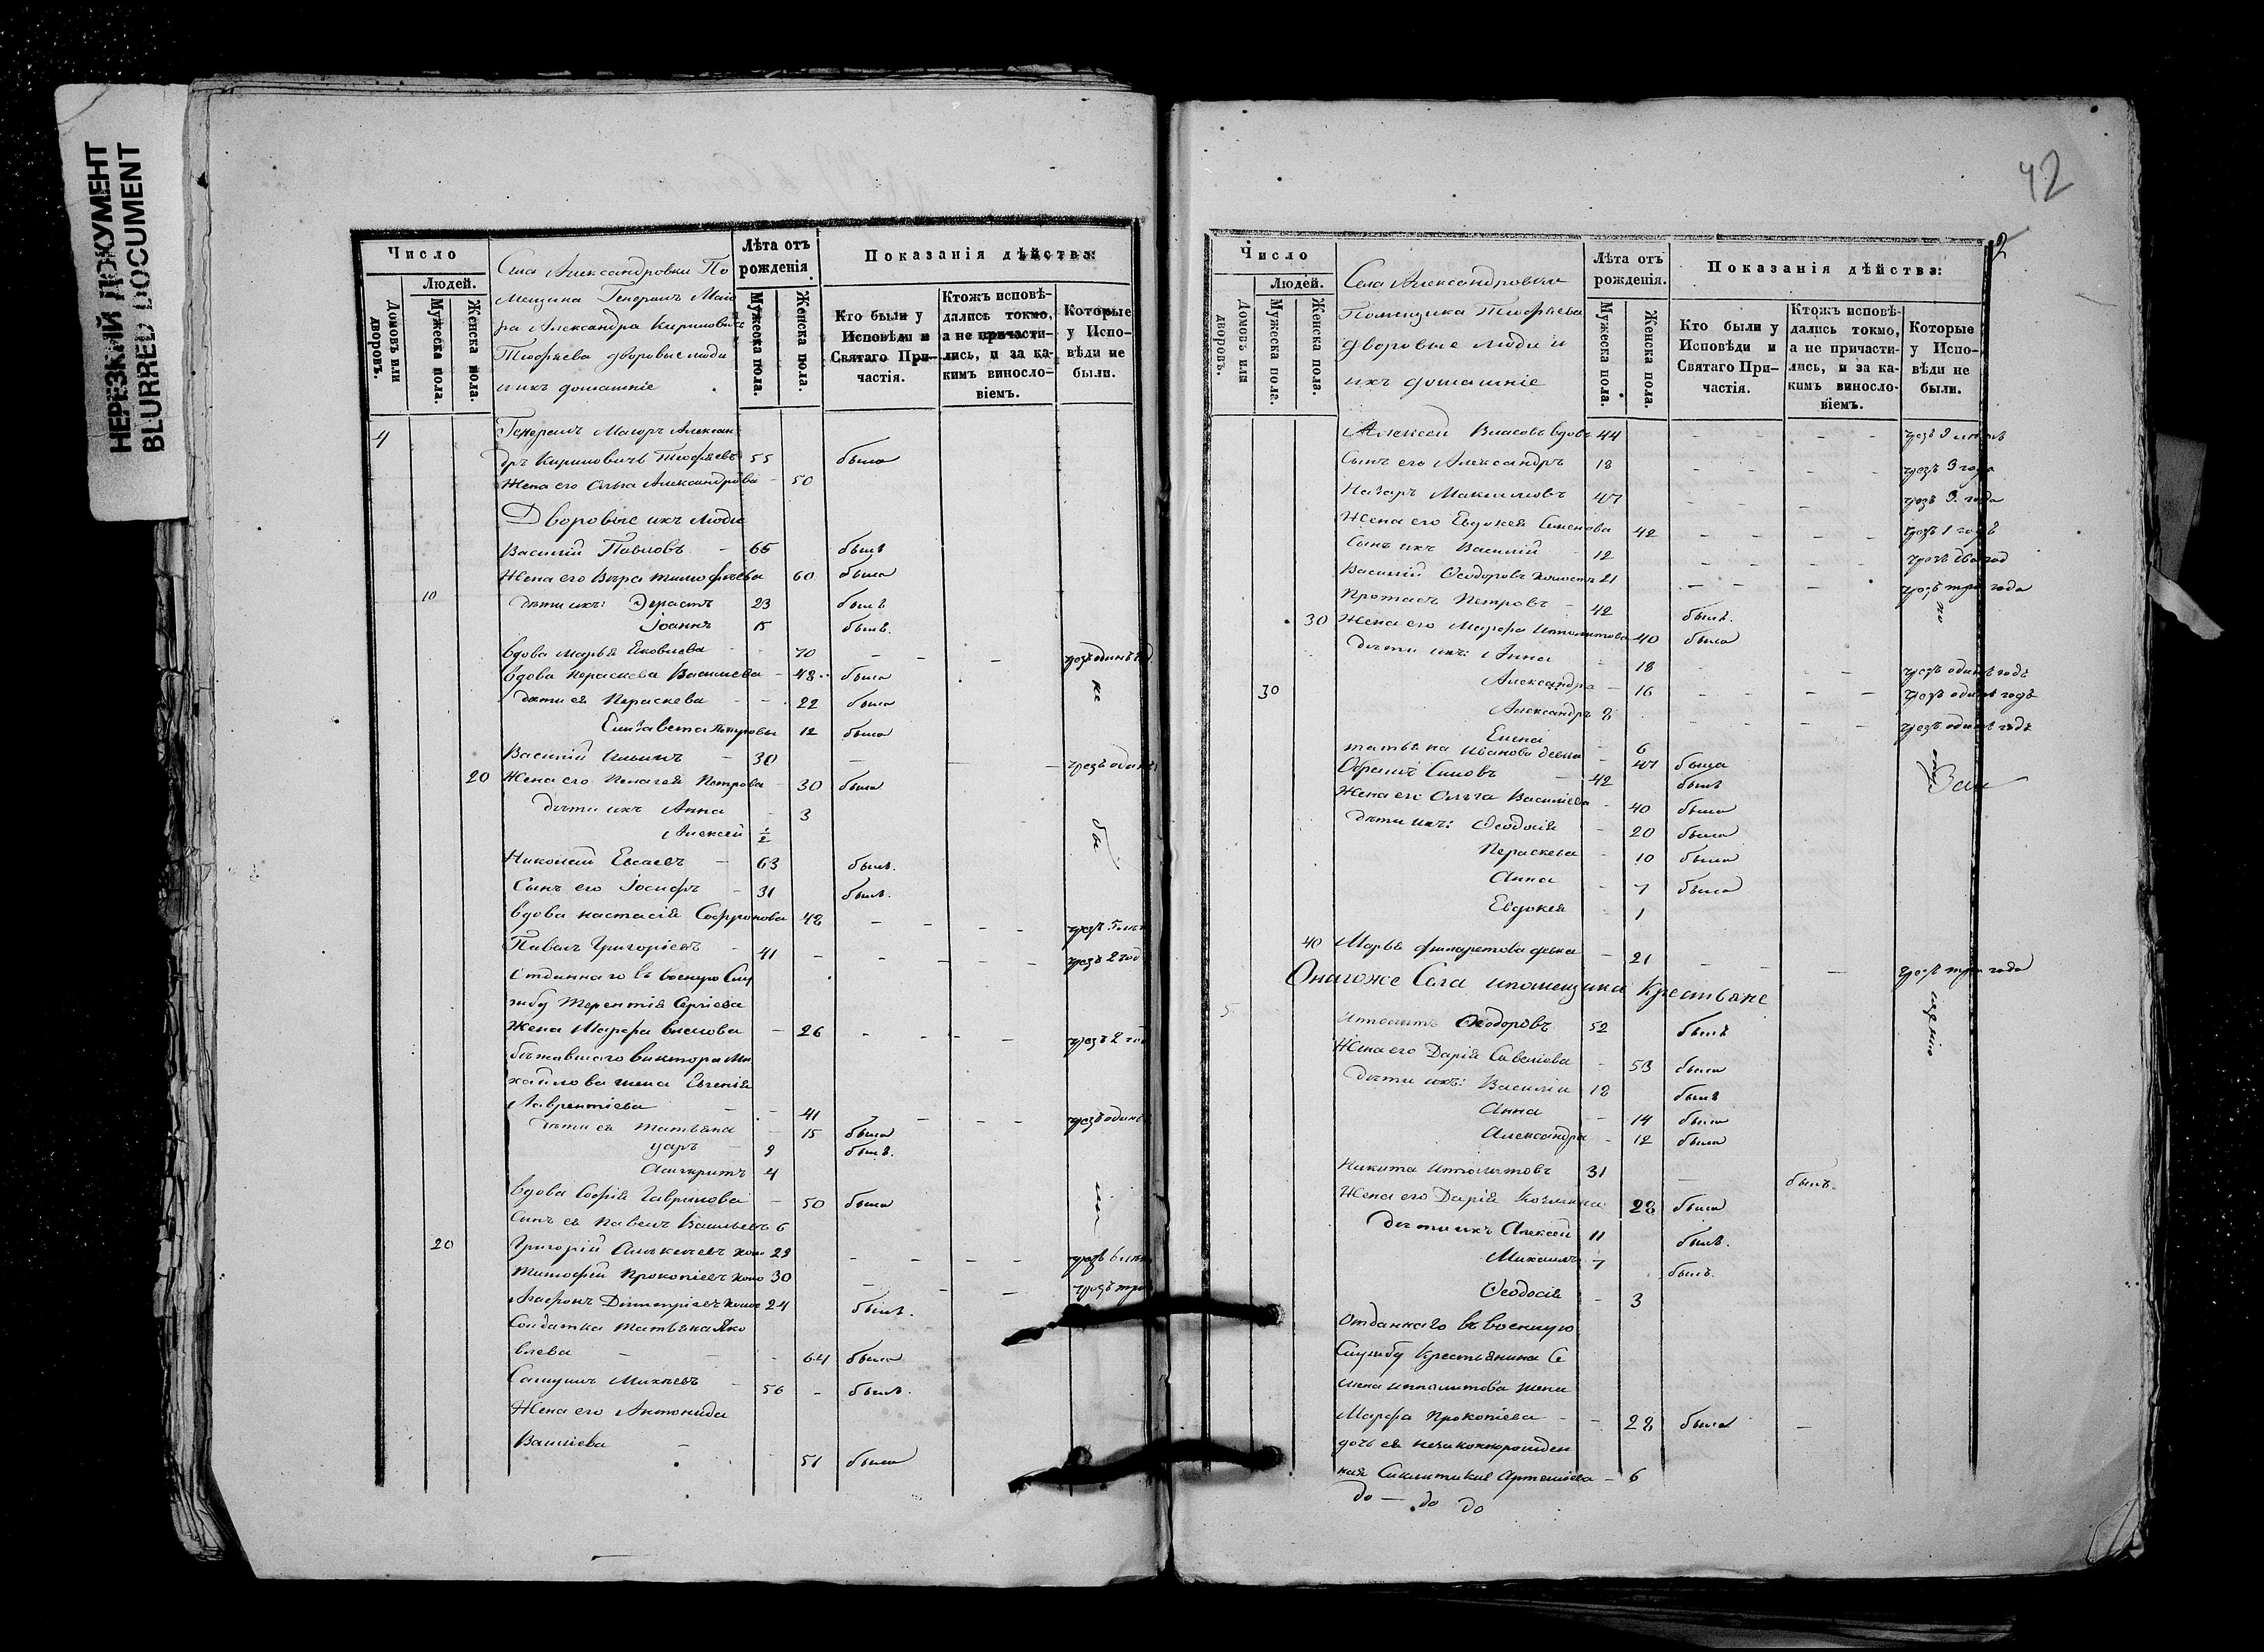 НЕРЕЗКИЙ ДОКУМЕНТ
BLURRED DOCUMENT
Число
Людей.
Домовъ или дворовъ.
Мужеска пола.
Женска пола.
Села Александровки По
мещика Генералъ Маіо
ра Александра Кириловича
Тюфяева дворовые люди
и ихъ домашніе
Лѣта отъ рожденія
Мужеска пола.
Женска пола.
Показанія дѣйства:
Кто были у Исповѣди и Святаго Причастія.
Ктожъ исповѣдались токмо, а не причастились, и за какимъ винословіемъ.
Которые у Исповѣди не были.
4 Генералъ Маіоръ Алексан
дръ Кириловичь Тюфяевъ 55 была
Жена его Ольга Александрова - 50
Дворовые ихъ люди
Василій Павловъ - 65 былъ
Жена его Вѣра тимофѣева 60 была
10 дѣти ихъ: Эрастъ 23 былъ
Іоаннъ 15 былъ.
вдова Марья Яковлева - 70 - - - чрезъ одинъ
вдова Параскева Васильева - 48 была
дѣти ея Параскева - 22 была
Елизавета Петровы 12 была
Василій Ильинъ - 30 - - чрезъ один
20 Жена его Пелагея Петрова - 30 была
дѣти ихъ Анна - 3
Алексей 1/2
Николай Евсеевъ - 63 былъ.
Сынъ его Іосифъ - 31 былъ.
вдова настасія Софронова 48 - - - чрезъ 5
Павелъ Григоріевъ - 41 - - - чрезъ 2 год
Отданнаго въ военую Слу
жбу Терентія Сергіева
Жена Марфа власова - 26 - - - чрезъ 2
бѣжавшаго виктора Ми
хайлова жена Евгенія
Лаврентіева - - 41 - - - чрезъ один
дѣти ея Татьяна - 15 была
9 былъ.
Асигкритъ 4
вдова Софія Гаврилова - 50 была
Сынъ ея Павелъ Васильевъ 6
20 Григорій 29 - - - - чрезъ
Тимофей Прокопіевъ холо 30 - - - чрезъ три
Агафонъ Димитріевъ холос 24 былъ.
Солдатка Татьяна Яко
влева - - - 64 была
Самуилъ Михѣевъ - 56 - былъ.
Жена его Антонида
Васильева - - 51 была
не
бы
ли
42
2
Число
Людей.
Домовъ или дворовъ.
Мужеска пола.
Женска пола.
Села Александровки
Помещика Тюфяева
дворовые люди и
ихъ домашніе
Лѣта отъ рожденія.
Мужеска пола.
Женска пола.
Показанія дѣйства:
Кто были у Исповѣди и Святаго Причастія.
Ктожъ исповѣдались токмо, а не причастились, и за какимъ винословіемъ.
Которые у Исповѣди не были.
Алексей Власовъ вдовъ 44 - - - - чрезъ
Сынъ его Александръ 18 - - - - чрезъ 3 года
Назаръ Максимовъ 47 - - - чрезъ 3 года
Жена его Евдокея Семенова 42 - - - - чрезъ 1 годъ
Сынъ ихъ Василій - 12 - - - - чрезъ
Василій Ѳеодоровъ холостъ 21 - - - чрезъ три года
Протасъ Петровъ - 42 былъ.
30 Жена его Марфа Ипполитова 40 была
дѣти ихъ: Анна - 18 - - чрезъ одинъ годъ
30 Александра - 16 - - - - чрезъ одинъ годъ
Александръ 8 - - - - чрезъ одинъ годъ
Елена - 6
татьяна Иванова девка - 47 была
Силовъ - 42 былъ
Жена его Ольга Василіева - 40 была
дѣти ихъ: Ѳеодосія - 20 была
Параскева - 10 была
Анна - 7 была
Евдокея - 1
40 Марья филаретова девка - 21 - - - чрезъ три года
Онагоже Села и помещика Крестьяне
5 Ипполитъ Ѳеодоровъ 52 былъ
Жена его Дарія Савеліева - 53 была
дѣти ихъ: Василій 18 былъ
Анна - 14 была
Александра - 12 была
Никита Ипполитовъ 31 - былъ.
Жена его Дарія 28 была
дѣти ихъ Алексей 11 былъ.
Михаилъ 7 былъ.
Ѳеодосія - 3
Отданнаго въ военную
Службу Крестьянина Се
мена ипполитова жена
Марфа Прокопіева - - 28 была -
дочь ея незаконнорожден
ная Синклитикія Артеміева - 6
до — до до